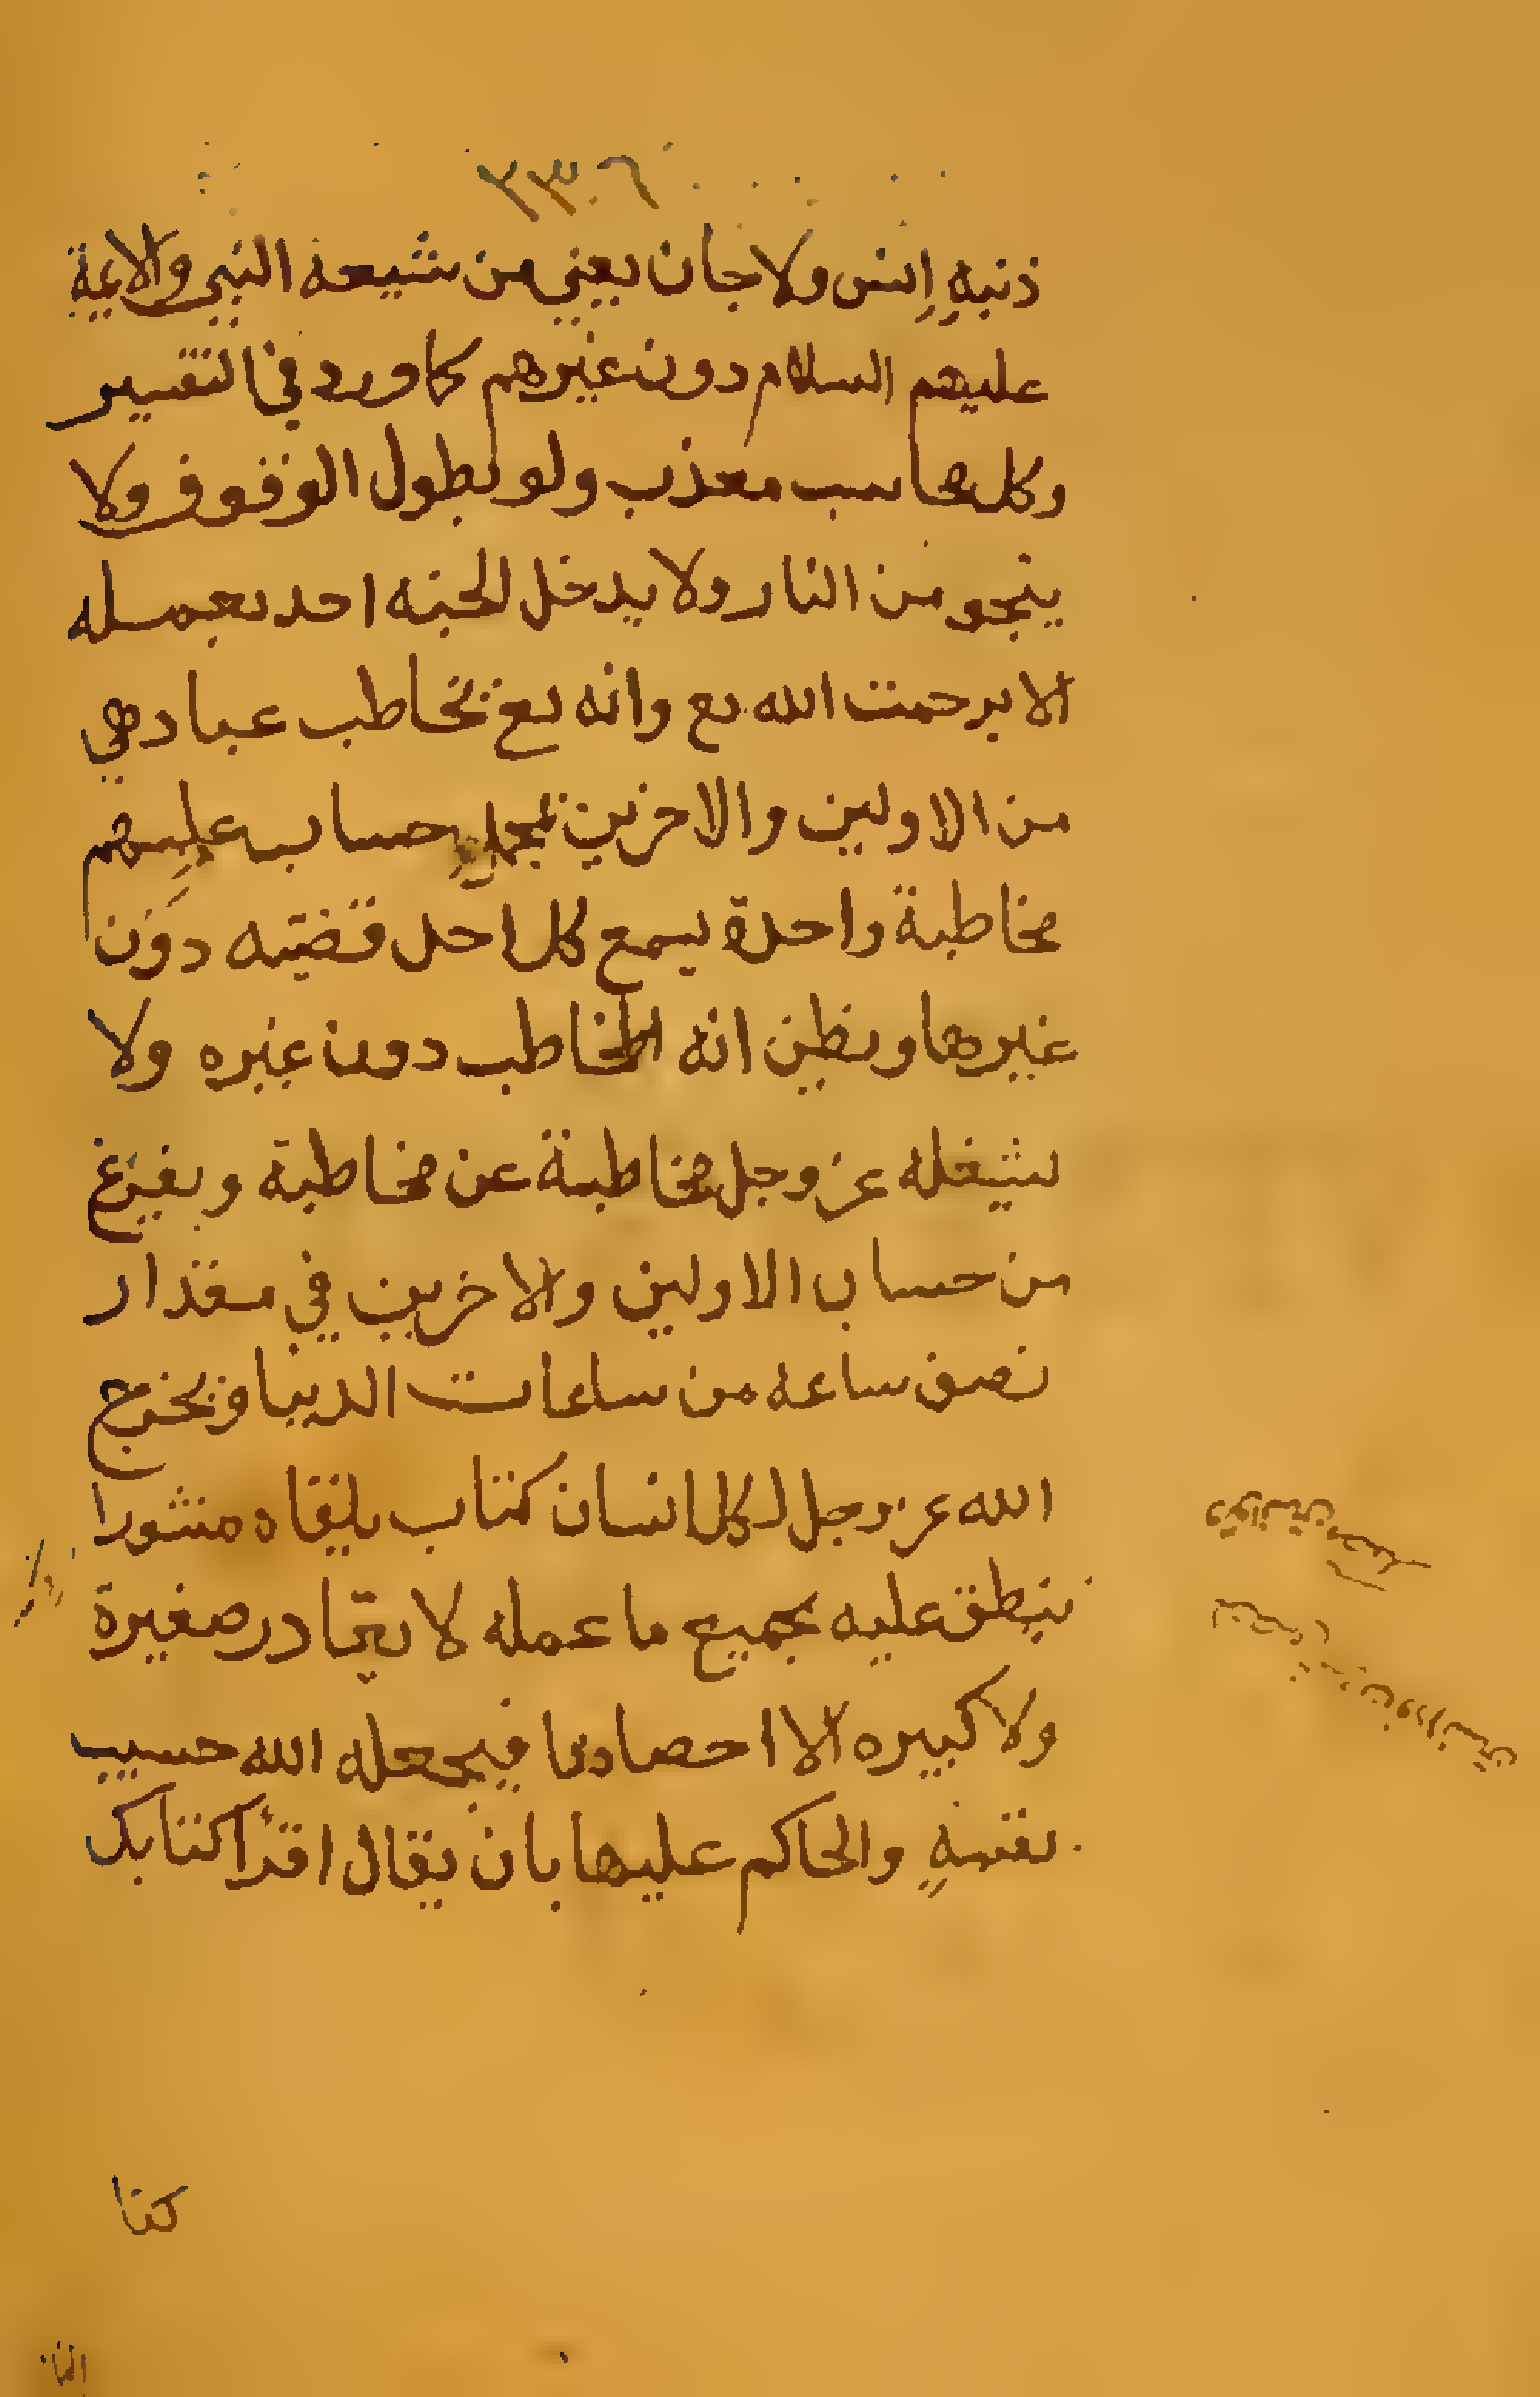 ذنبهِ اِنس ولا جان يعني من شيعة النبي والايمة
عليهم السلام دون غيرهم كما ورد في التفسير
وكل محاسب معذب ولو بطول الوقوف ولا
ينجو من النار ولا يدخل الجنه احد بعمله
الا برحمت الله تع وانه تع يخاطب عباده
من الاولين والاخرين حساب عليهم
مخاطبة واحدة يسمع كل احد قضيته دون
غيرها ويظن انه المخاطب دون غيره ولا
يشغله عز وجل مخاطبة عن مخاطبة ويفرغ
من حساب الاولين والاخرين في مقدار
نصف ساعه من ساعات الدينا ويخرج
الله عز وجل لكل انسان كتاب يلقاه منشورا
ينطق عليه بجميع ما عمله لا يغادر صغيرة
ولا كبيره الا احصاها فيجعله الله حسيب
نفسهِ والحاكم عليها بان يقال اقرأ كتابك
كتا